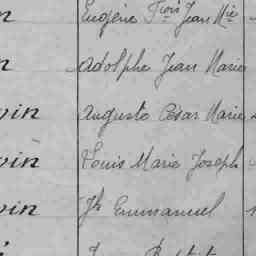 Eugène Fçois Jean Mie
Adolphe Jean Marie
vin Auguste César Marie
vin Louis Marie Joseph
vin Jh Emmanuel